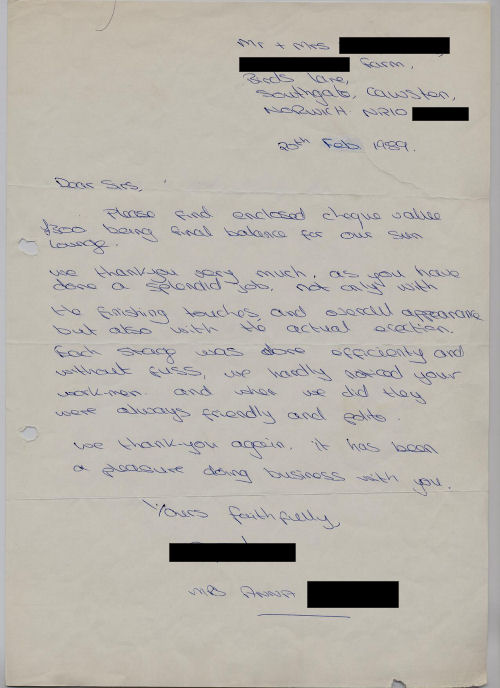 Mr + Mrs
Farm,
Birds Lane,
Southgate, Cawston,
NORWICH NR10
20th Feb 1989.
Dear Sirs,
Please find enclosed cheque value
£300 being final balance for our sun
lounge.
we thank-you very much, as you have
done a splendid job, not only with
the finishing touches and overall appearance
but also with the actual erection.
Each stage was done efficiently and
without fuss, we hardly noticed your
work-men. and when we did they
were always friendly and polite.
we thank-you again. it has been
a pleasure doing business with you.
Yours faithfully,
MRS ANNA